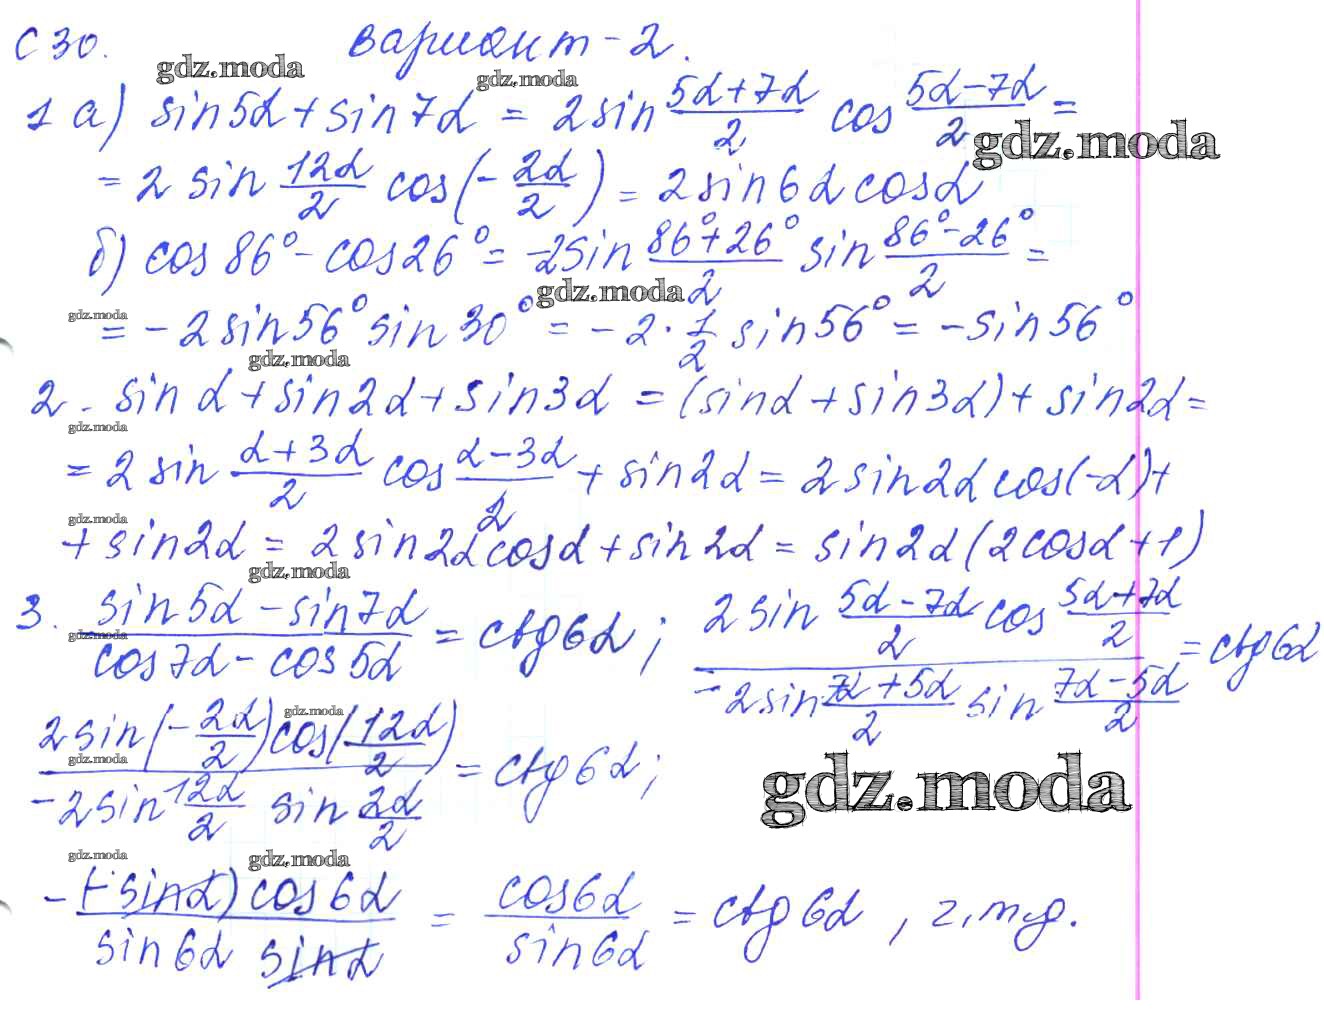 С 30. Вариант - 2.
gdz.moda gdz.moda
1 а) sin5α + sin7α = 2sin (5α+7α)/2 cos (5α-7α)/2 =
gdz.moda
= 2 sin 12α/2 cos(-2α/2) = 2sin6α cosα
б) cos 86° - cos26° = -2sin (86°+26°)/2 sin (86°-26°)/2 =
gdz.moda
gdz.moda
= -2sin56° sin30° = -2·1/2 sin56° = -sin56°
gdz.moda
2. sin α + sin2α + sin3α = (sinα + sin3α) + sin2α =
gdz.moda
= 2 sin (α+3α)/2 cos (α-3α)/2 + sin2α = 2sin2α cos(-α) +
gdz.moda
+ sin2α = 2sin2αcosα + sin2α = sin2α(2cosα+1)
gdz.moda
3. (sin5α - sin7α)/(cos7α - cos5α) = ctg6α; (2sin (5α-7α)/2 cos (5α+7α)/2)/(-2sin (7α+5α)/2 sin (7α-5α)/2) = ctg6α
gdz.moda
gdz.moda
(2sin(-2α/2)cos(12α/2))/(-2sin 12α/2 sin 2α/2) = ctg6α;
gdz.moda
gdz.moda
gdz.moda gdz.moda
-((-sinα)cos6α)/(sin6α sinα) = cos6α/sin6α = ctg6α, ч.т.д.